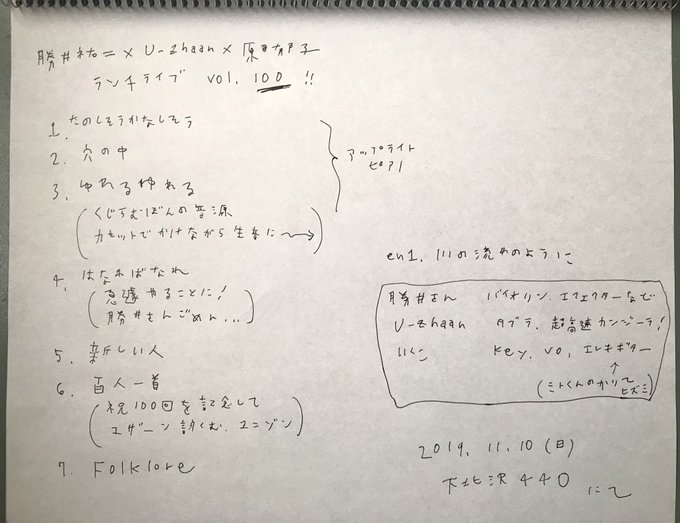 勝井祐二 × U-zhaan × 原田郁子
ランチライブ vol. 100 !!
1. たのしそうかなしそう
2. 穴の中
3. ゆれるゆれる
(くじらむぼんの音源
カセットでかけながら生音に〜→)
アップライト
ピアノ
4. はなればなれ
(急遽やることに!
勝井さんごめん...)
5. 新しい人
6. 百人一首
(祝100回を記念して
ユザーン 訳くむ. ユニゾン)
7. Folklore
en1. 川の流れのように
勝井さん バイオリン. エフェクターなど
U-zhaan タブラ. 超高速カンジーラ!
いくこ Key, vo, エレキギター
↑
(ミトくんのかりて
ヒズミ)
2019. 11. 10 (日)
下北沢 440 にて